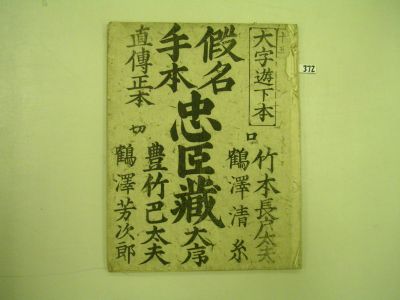 大字遊下本
十五
372
假名
手本
忠臣藏
大序
直傳正本
口
竹本長戸太夫
鶴澤清糸
切
豊竹巴太夫
鶴澤芳次郎